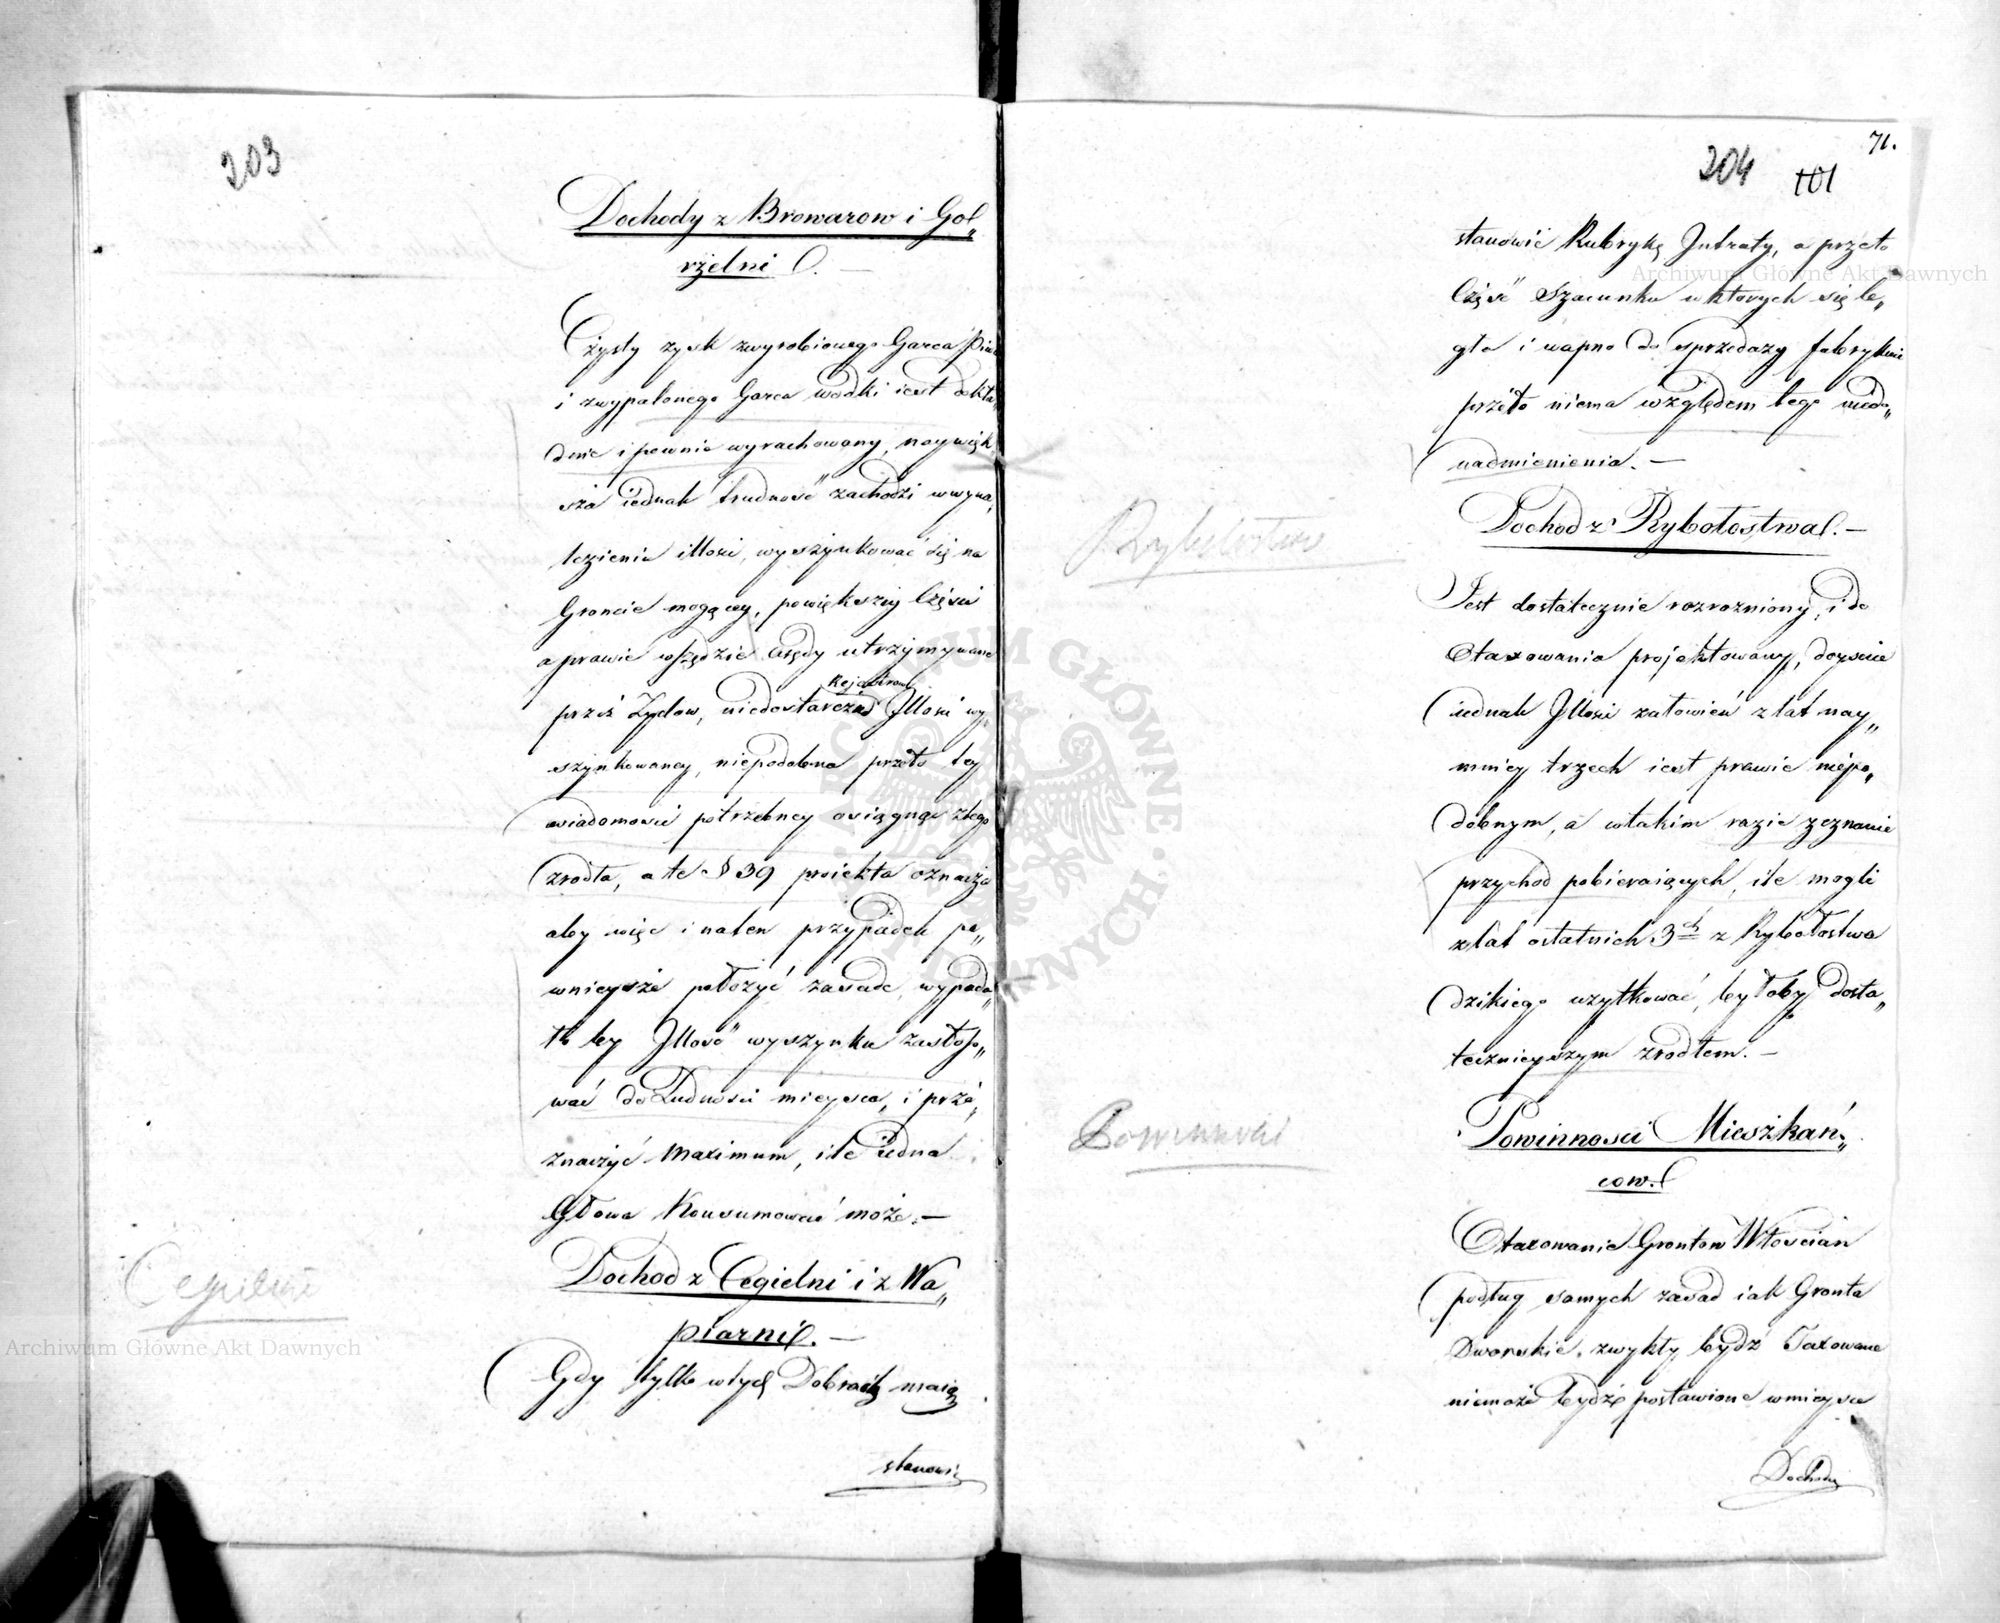 203
Dochody z Browarow i Gol„
rzelni.
Czysty zysk zwyrobionego Garca Piwa
i zwypalonego Garca wodki iest dokła„
dnie i pewnie wyrachowany, naywięk„
sza iednak trudność zachodzi wwyna„
lezieniu illosci, wyszynkować się na
Groncie mogącey, powiększey Części
a prawie wszędzie będy utrzymywane
Rejestrow
przez Zydow, niedostarcza Jllosci wy„
szynkowaney, niepodobna przeto tey
wiadomosci potrzebney osięgnąc ztego
zrodła, a te § 39 proiektu oznacza
aby więc i naten przypadek pe„
wnieysze położyć zasade, wypada„
ło by Jllość wyszynku zastoso„
wać do Ludnosci mieysca, i prze„
znaczyć Maximum, ile iedna
Głowa Konsumować może.—
Cegielnie
Dochod z Cegielni i z Wa„
piarni.—
Gdy tylko wtych Dobrach maią
stanowić
71.
204 101
stanowić Rubrykę Jntraty, a przeto
Część Szacunku wktorych się ce„
gła i wapno do sprzedazy fabrykuie
przeto niema względem tego nicdo„
nadmienienia.—
Rybołostwo
Dochod z Rybołostwa.—
Jest dostatecznie rozrozniony, i do
Otaxowania projektowany, doyscie
iednak Jllosci załowień z lat nay„
mniey trzech iest prawie niepo„
dobnym, a wtakim razie zeznanie
przychod pobieraiących, ile mogli
zlat ostatnich 3ch z Rybołostwa
dzikiego uzytkować, byłoby dosta„
tecznieyszym zrodłem.—
Powinności
Powinnosci Mieszkań„
cow.
Otaxowanie Grontow Włoscian
podług samych zasad iak Gronta
Dworskie zwykły bydź Taxowane
niemoże bydź postawione wmieysce
Dochodu
Archiwum Główne Akt Dawnych
Archiwum Główne Akt Dawnych
ARCHIWUM GŁÓWNE · AKT DAWNYCH ·